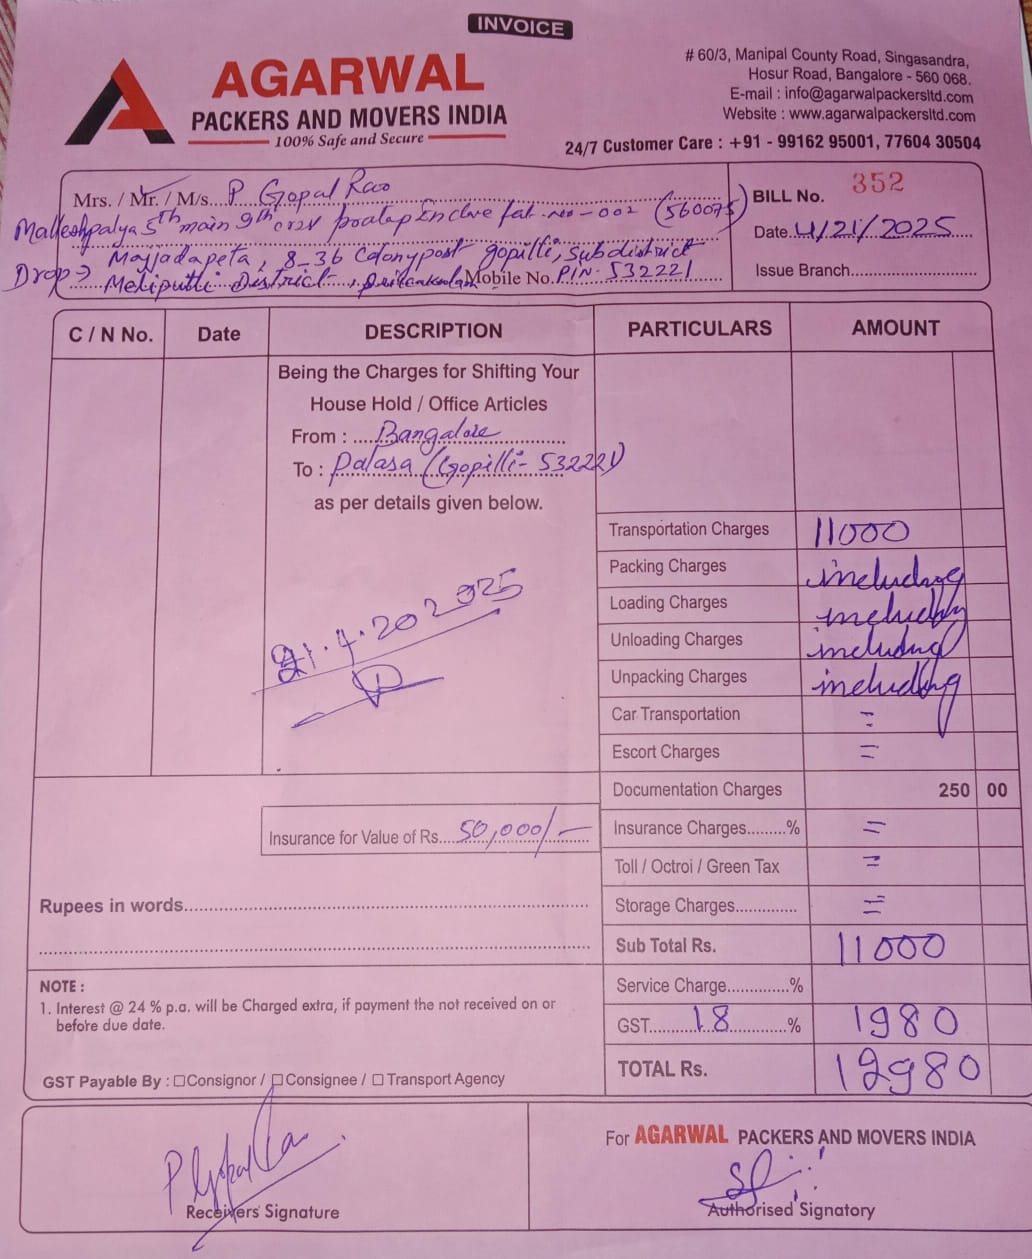 INVOICE
AGARWAL
PACKERS AND MOVERS INDIA
100% Safe and Secure
# 60/3, Manipal County Road, Singasandra,
Hosur Road, Bangalore - 560 068.
E-mail : info@agarwalpackersltd.com
Website : www.agarwalpackersltd.com
24/7 Customer Care : +91 - 99162 95001, 77604 30504
Mrs. / Mr. / M/s. P Gopal Rao
Malleshpalya 5th main 9th (560075)
Majjadapeta, 8-36 Colonypost gopilli, Subdistrict
Drop → Meliputti District, Mobile No. PIN. 532221
BILL No. 352
Date. 4/21/2025
Issue Branch
C / N No. Date DESCRIPTION PARTICULARS AMOUNT
Being the Charges for Shifting Your
House Hold / Office Articles
From : Bangalore
To : Palasa (Gopilli- 532221)
as per details given below.
Transportation Charges 11000
Packing Charges including
Loading Charges including
Unloading Charges including
Unpacking Charges including
Car Transportation =
Escort Charges =
Documentation Charges 250 00
Insurance Charges.........% =
Toll / Octroi / Green Tax =
Storage Charges.............. =
Sub Total Rs. 11000
Service Charge..............%
GST 18 % 1980
TOTAL Rs. 12980
21.4.202025
Insurance for Value of Rs. 50,000/-
Rupees in words
NOTE :
1. Interest @ 24 % p.a. will be Charged extra, if payment the not received on or
before due date.
GST Payable By : ☐Consignor / ☐Consignee / ☐ Transport Agency
P Gopal Rao
Receivers Signature
For AGARWAL PACKERS AND MOVERS INDIA
Authorised Signatory